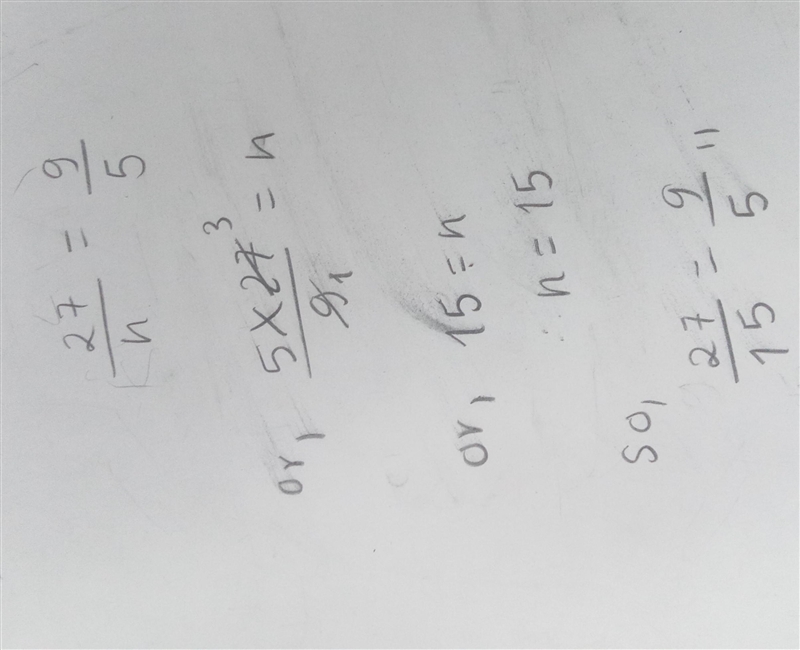 27/n = 9/5
or, 5×27 3/9 1 = n
or, 15 = n
∴ n = 15
so, 27/15 = 9/5 "